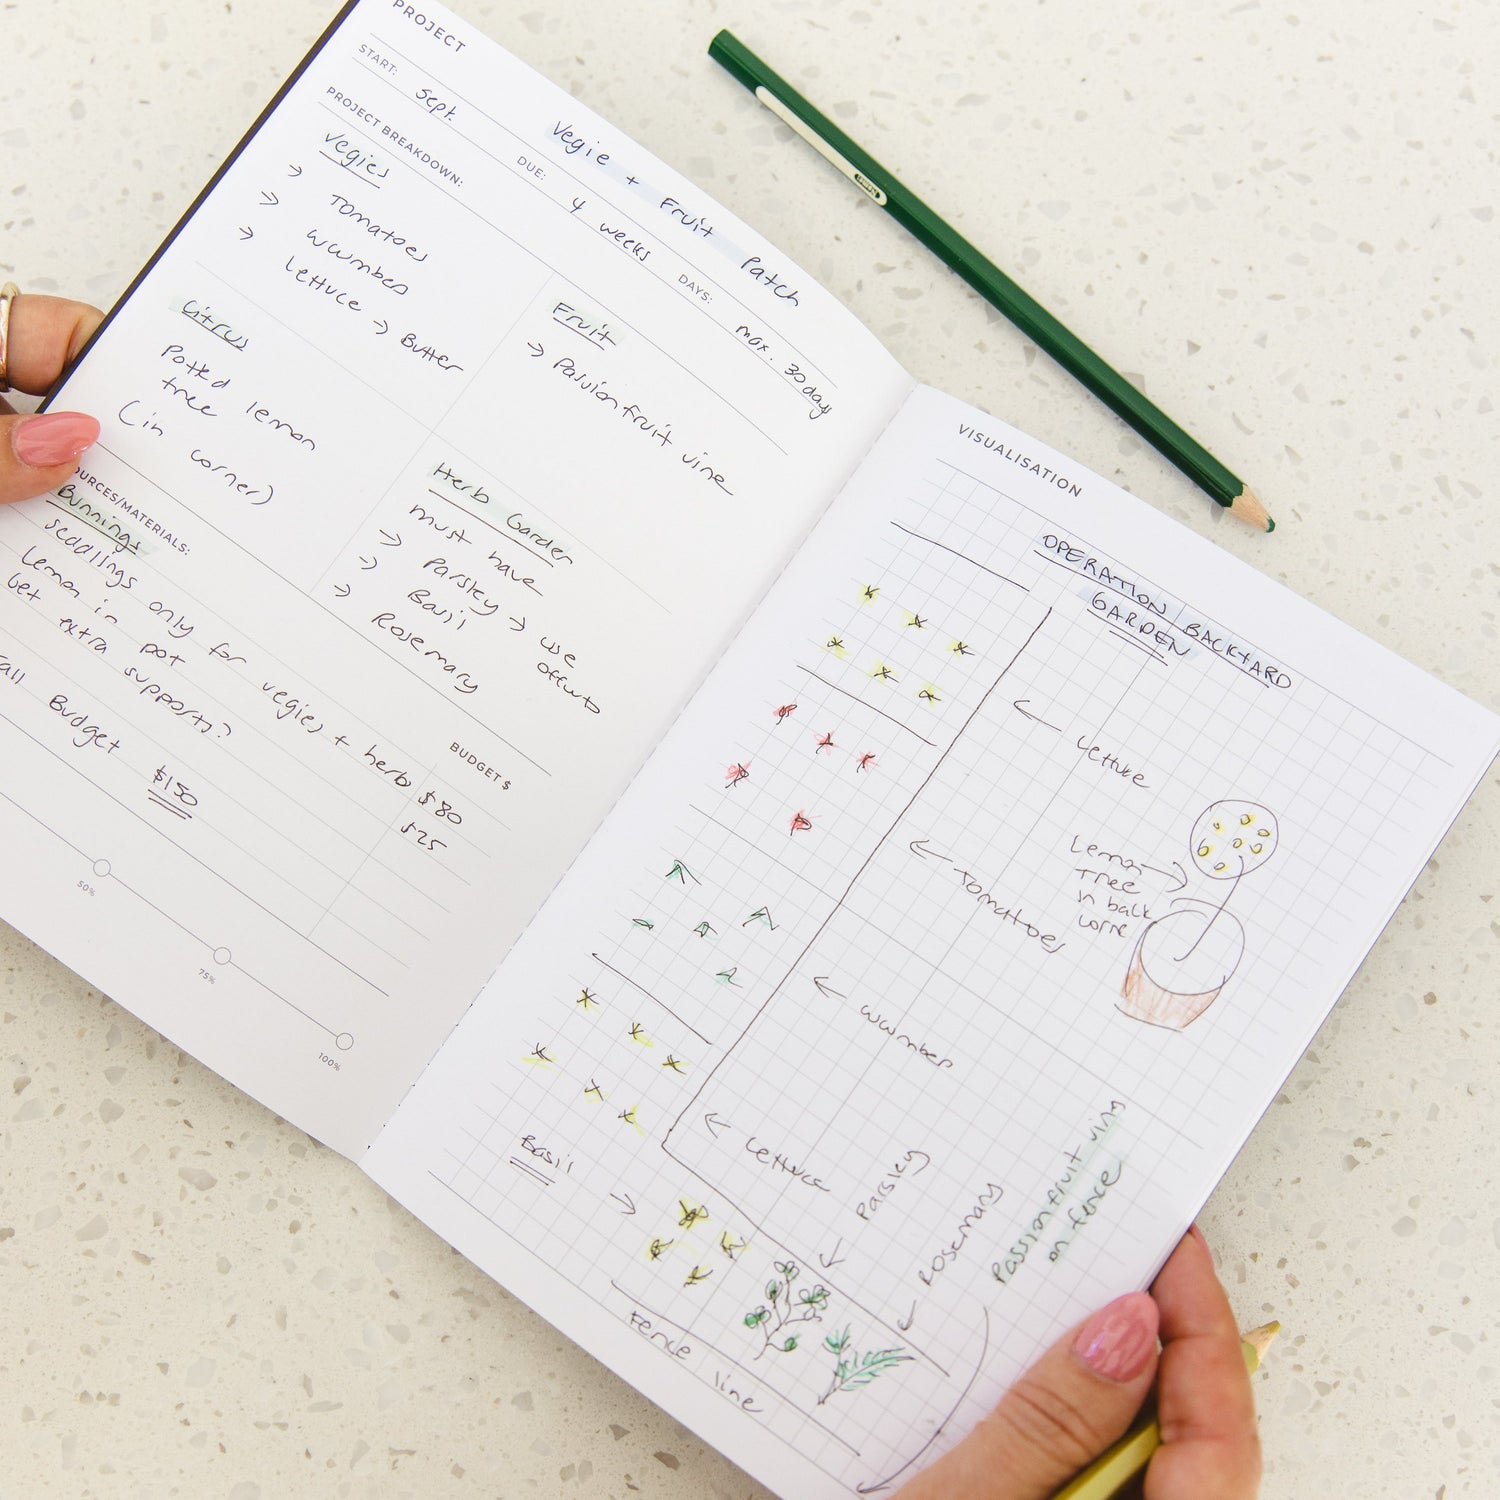 PROJECT
Vegie + Fruit Patch
START: Sept. DUE: 4 weeks DAYS: max. 30 days
PROJECT BREAKDOWN:
Vegies
→ Tomatoes
→ cucumber
→ lettuce → Butter
Fruit
→ Passionfruit vine
Citrus
Potted lemon
tree
(in corner)
Herb Garden
must have
→ Parsley → use offcuts
→ Basil
→ Rosemary
OURCES/MATERIALS:
BUDGET $
Bunnings
seedlings only for vegies + herbs $80
Lemon in pot $25
Get extra supports?
Budget $150
50%
75%
100%
VISUALISATION
OPERATION BACKYARD
GARDEN
← Lettuce
← Tomatoes
Lemon →
Tree
in back
corne
← cucumber
← Lettuce
Basil →
Parsley
Rosemary
Passionfruit vine
on fence
Fence line